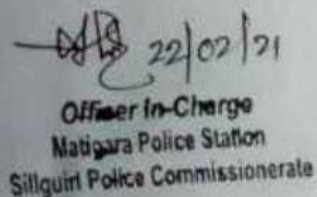 22/02/21
Officer In-Charge
Matigara Police Station
Siliguri Police Commissionerate